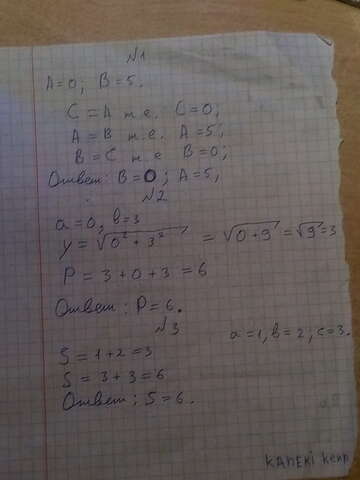 N1
A=0; B=5.
C=A т.е. C=0;
A=B т.е. A=5;
B=C т.е B=0;
Ответ: B=0; A=5,
N2
a=0, b=3
y=√0²+3² =√0+9=√9=3
P=3+0+3=6
Ответ: P=6.
N3
a=1, b=2; c=3.
S=1+2=3
S=3+3=6
Ответ: S=6.
KAHEKI кенп